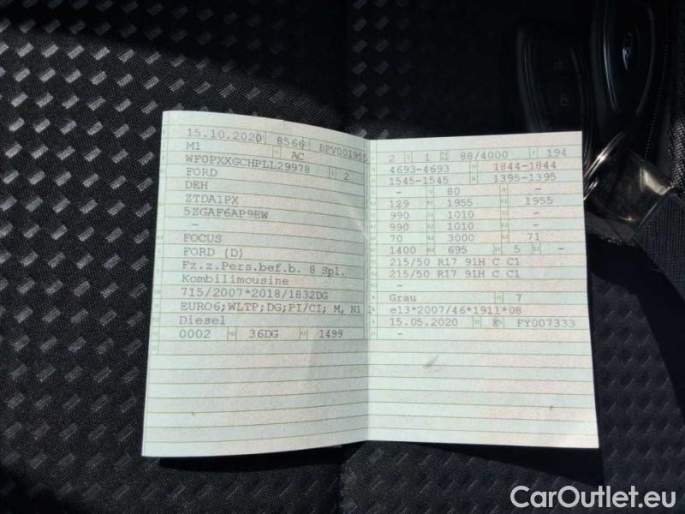 15.10.2020 8566 BPV001955
M1 AC
WF0PXXGCHPLL29978 2
FORD
DEH
ZTDA1PX
5ZGAF6AP9EW
-
FOCUS
FORD (D)
Fz.z.Pers.bef.b. 8 Spl.
Kombilimousine
715/2007*2018/1832DG
EURO6;WLTP;DG;PI/CI; M, N1
Diesel
0002 36DG 1499
2 1 88/4000 194
4693-4693 1844-1844
1545-1545 1395-1395
- 80 -
129 1955 1955
990 1010 -
990 1010 -
70 3000 71
1400 695 5 -
215/50 R17 91H C C1
215/50 R17 91H C C1
-
Grau 7
e13*2007/46*1911*08
15.05.2020 K FY007333
-
CarOutlet.eu